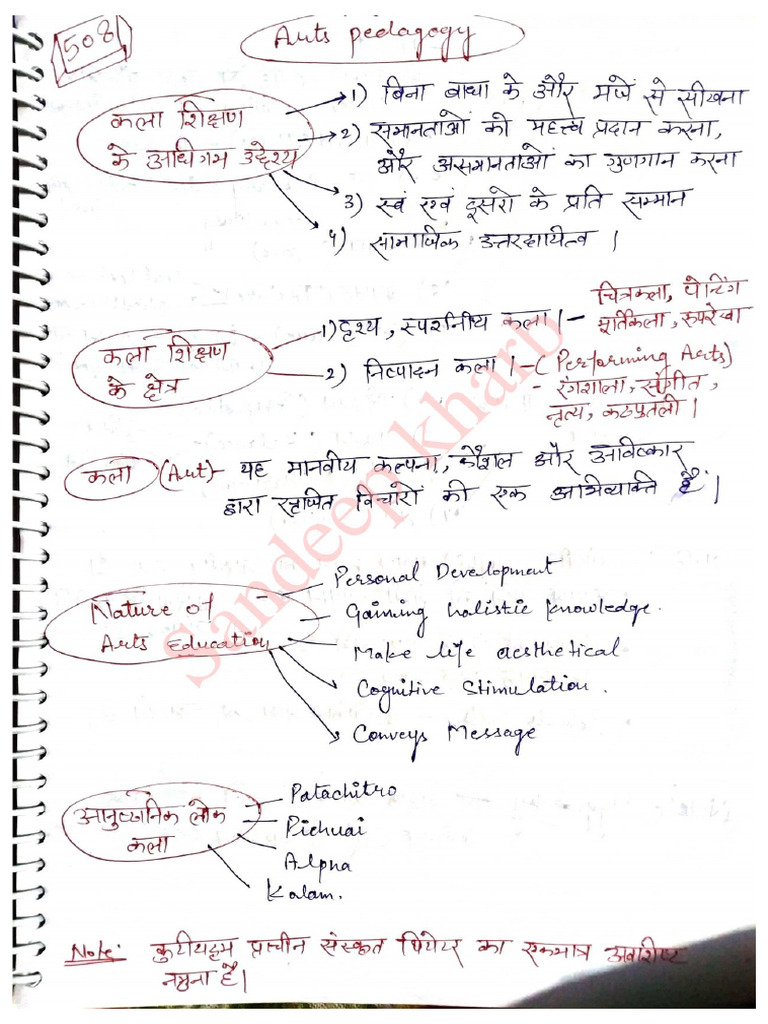 508
Arts pedagogy
कला शिक्षण
के अधिगम उद्देश्य
1) बिना बाधा के और मजे से सीखना
2) समानताओं को महत्त्व प्रदान करना,
और असमानताओं का गुणगान करना
3) स्वं एवं दूसरो के प्रति सम्मान
4) सामाजिक उत्तरदायित्व ।
कला शिक्षण
के क्षेत्र
1) दृश्य, स्पर्शनीय कला । - चित्रकला, पेंटिंग
मूर्तिकला, रूपरेखा
2) निष्पादन कला । - (Performing Arts)
- रंगशाला, संगीत,
नृत्य, कठपुतली ।
कला (Art) - यह मानवीय कल्पना, कौशल और आविष्कार
द्वारा स्थापित विचारों की एक अभिव्यक्ति है ।
Nature of
Arts Education
- Personal Development
- Gaining holistic knowledge.
- Make life aesthetical
Cognitive Stimulation.
Conveys Message
आनुष्ठानिक लोक
कला
- Patachitro
- Pichuai
Alpna
Kalam.
Note: कुटीयट्टम प्राचीन संस्कृत थियेटर का एकमात्र अवशिष्ट
नमुना है ।
Sandeep kharb